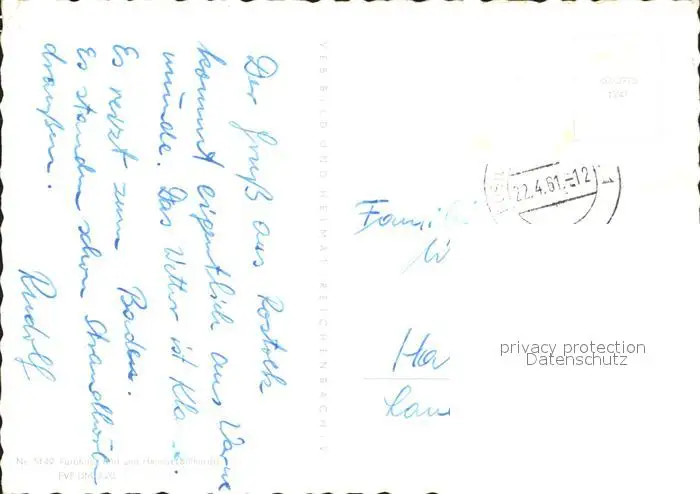 Der Gruß aus Rostock
kommt eigentlich aus Warne
münde. Das Wetter ist Kla
Es reizt zum Baden.
Es standen schon Strandkörbe
draußen.
Rudolf
VEB BILD UND HEIMAT REICHENBACH I. V.
22.4.61.-12
Famili
Ha
privacy protection
Datenschutz